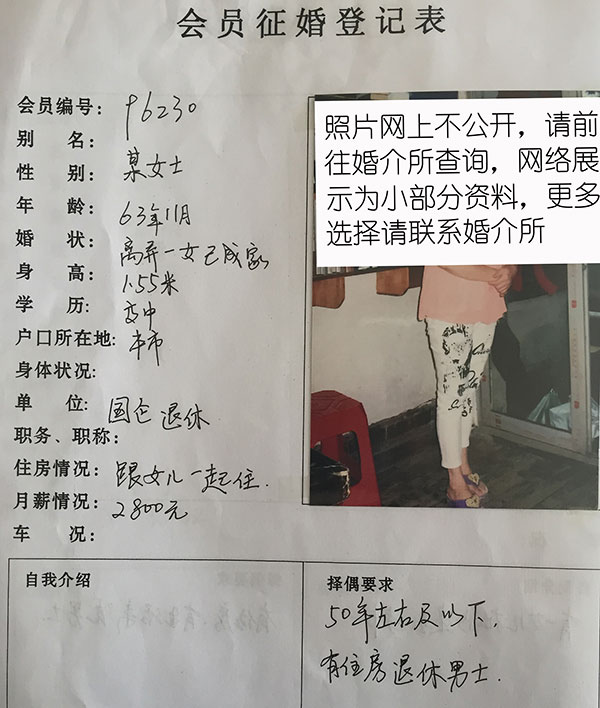 会员征婚登记表
会员编号： 96230
别 名：
性 别： 某女士
年 龄： 63年11月
婚 状： 离异一女已成家
身 高： 1.55米
学 历： 高中
户口所在地: 本市
身体状况:
单 位: 国仓 退休
职务、职称：
住房情况： 跟女儿一起住.
月薪情况： 2800元
车 况：
照片网上不公开，请前
往婚介所查询，网络展
示为小部分资料，更多
选择请联系婚介所
自我介绍
择偶要求
50年左右及以下.
有住房退休男士.